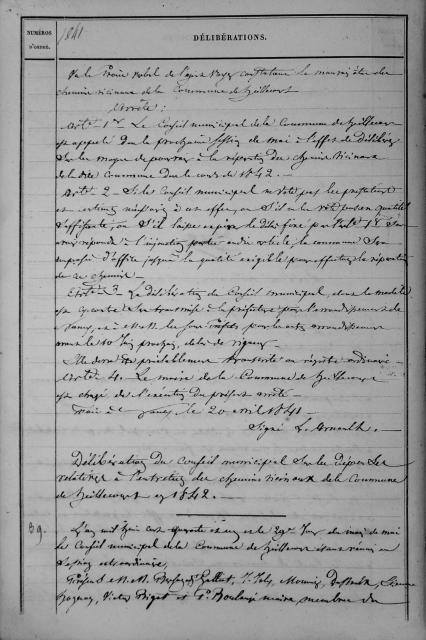 NUMÉROS
D'ORDRE.
DÉLIBÉRATIONS.
1841
Vu le Procès verbal de l'agent Voyer constatant le mauvais état des
chemins vicinaux de la Commune de
Arrête :
Art. 1er. Le Conseil municipal de la Commune de
est appelé dans la prochaine session de mai à l'effet de délibérer
sur les moyens de pourvoir à la réparation des chemins vicinaux
de la dite Commune dans le cours de 1842. —
Art. 2. Si le Conseil municipal ne vote pas les prestations
et centimes nécessaires à cet effet, ou s'il ne les vote pas en quantité
suffisante, ou s'il laisse expirer le délai fixé par l'art. 5 sans
avoir répondu à l'injonction portée au dit article, la commune sera
imposée d'office jusqu'à la quotité exigible pour effectuer la réparation
de ces chemins —
Art. 3. La délibération du Conseil municipal, dont le modèle
est ci-contre sera transmise à la préfecture pour l'arrondissement de
et à M.M. les Sous Préfets pour les autres arrondissements
avant le 10 Juin prochain, délai de rigueur —
Elle devra être préalablement transcrite au registre ordinaire —
Art. 4. Le maire de la Commune de
est chargé de l'exécution du présent arrêté —
le 20 avril 1841 —
Signé L. Arnault. —
Délibération du Conseil municipal sur les dépenses
relatives à l'entretien des chemins vicinaux de la Commune
de en 1842. —
39.
L'an mil huit cent quarante et un et le 29e Jour du mois de mai
le Conseil municipal de la Commune de étant réuni en
session extraordinaire,
Présents M.M.
Victor et maire, membres du